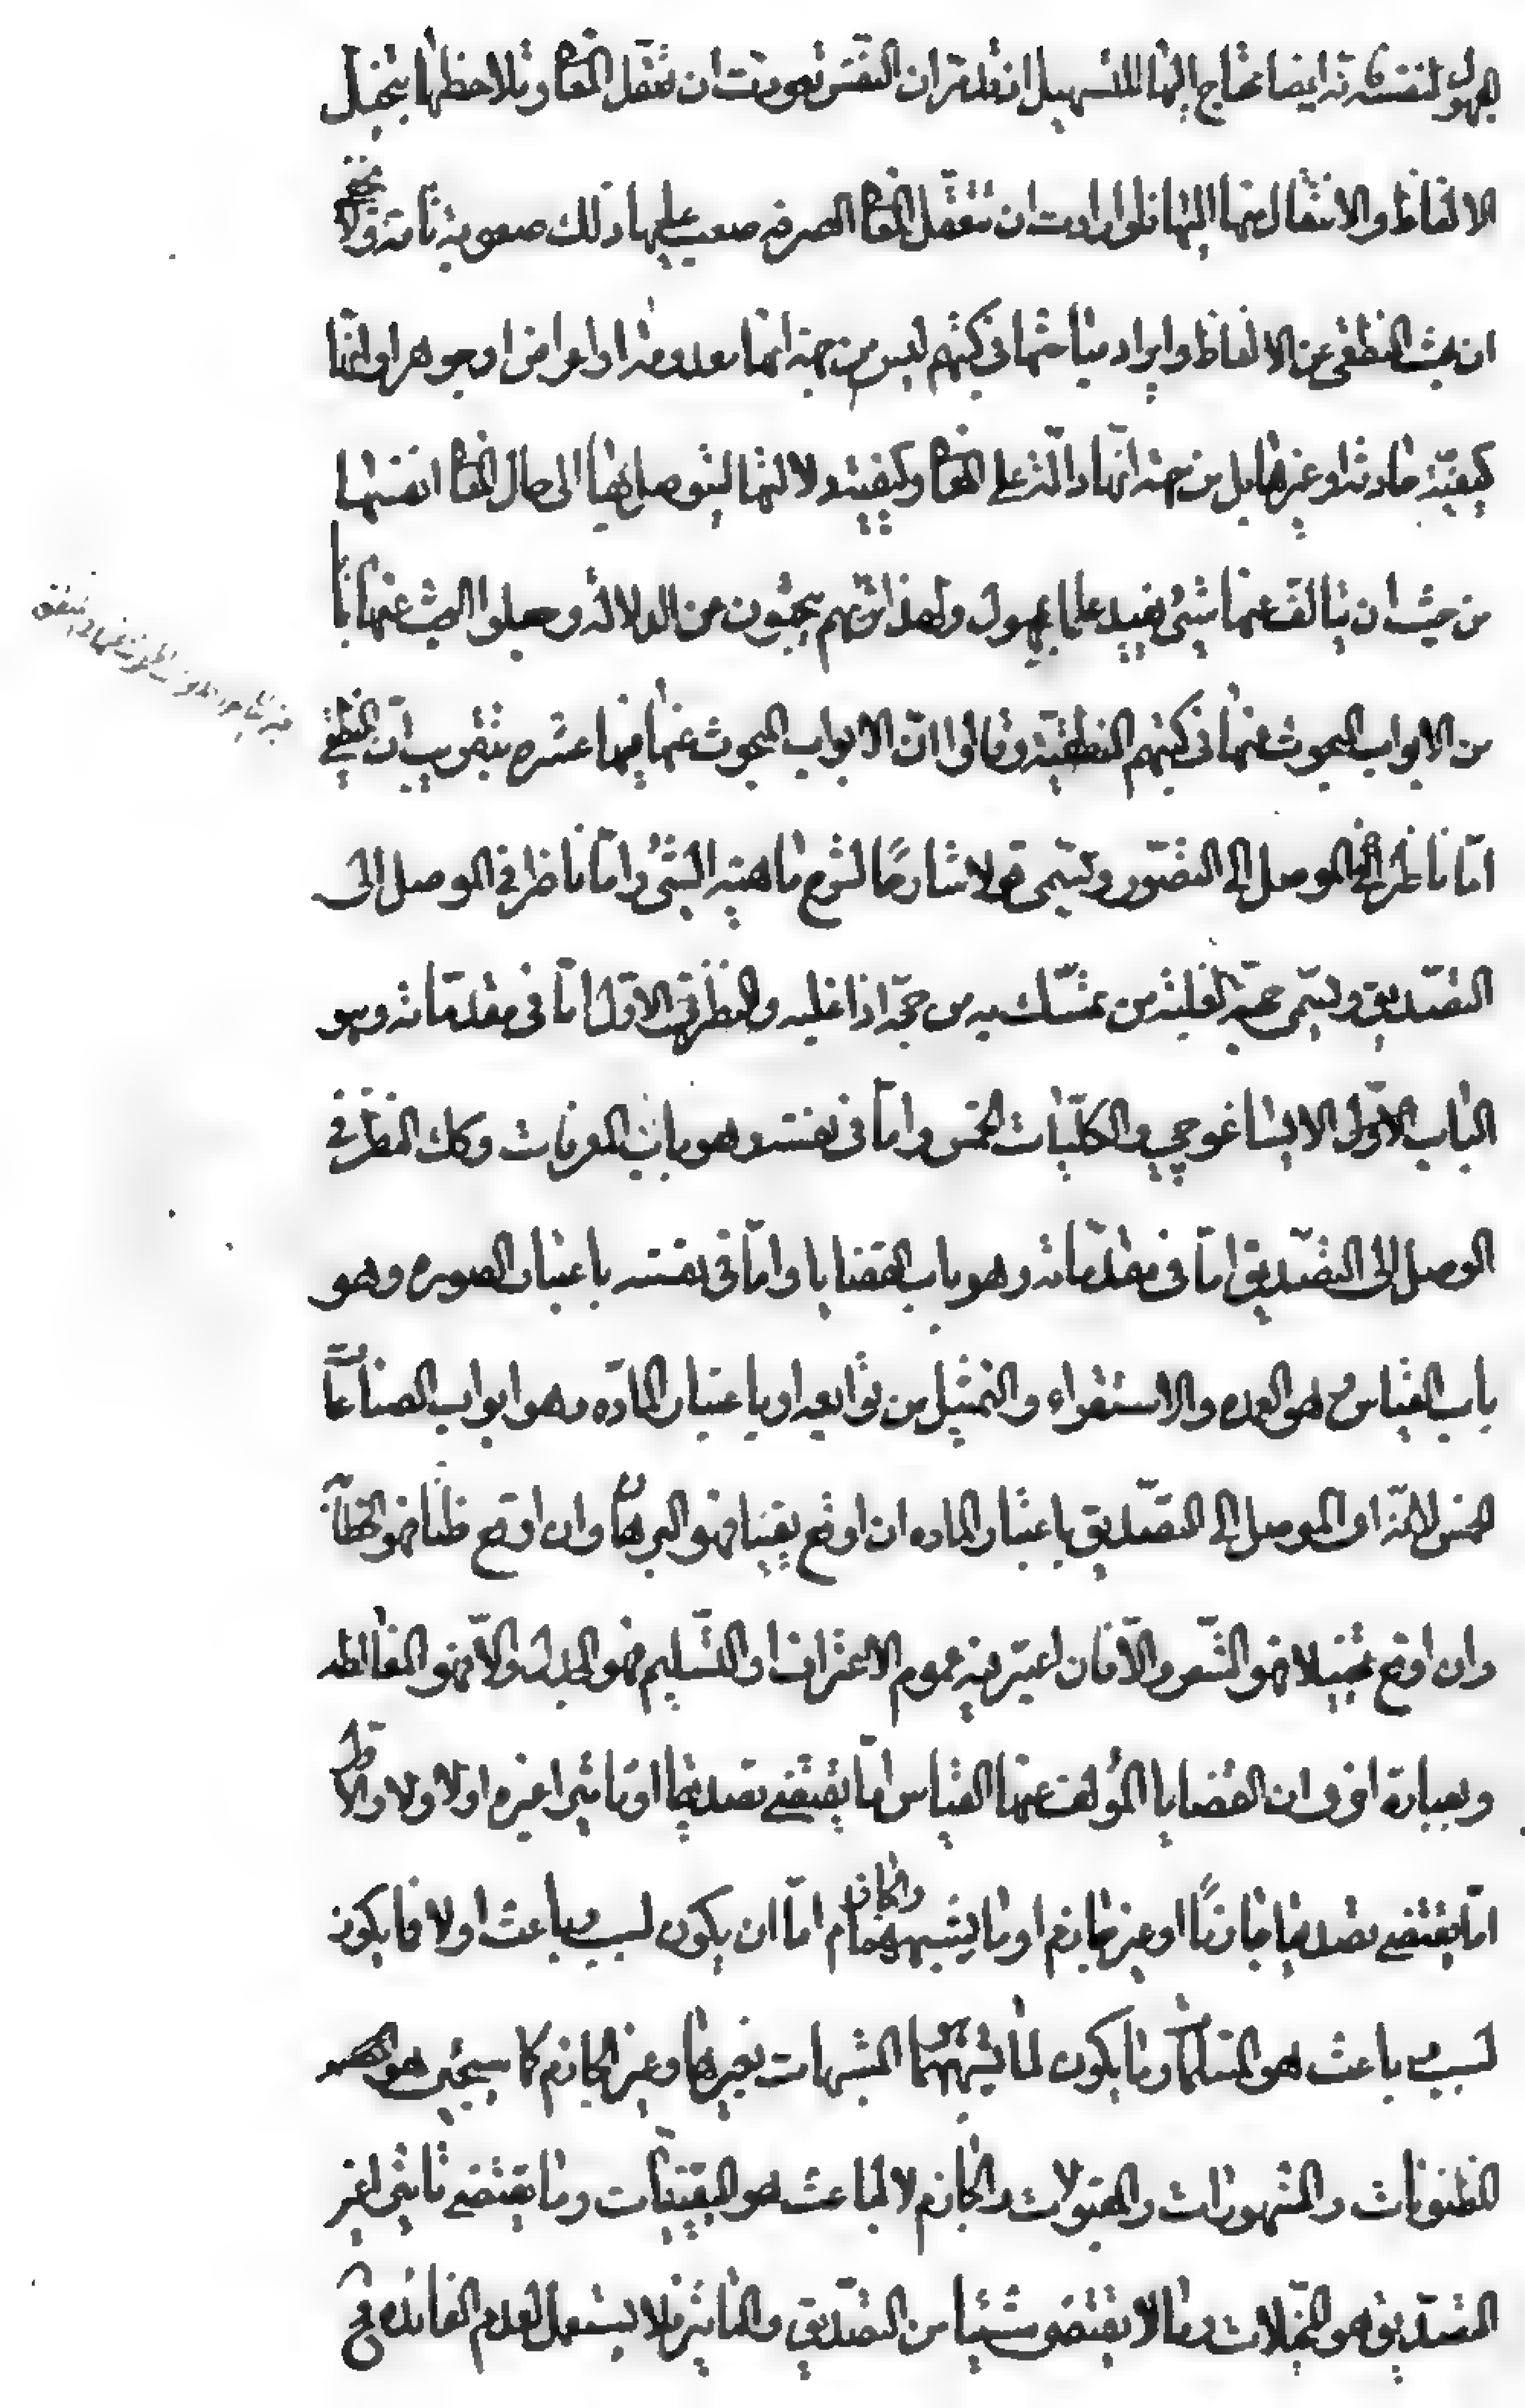 المجهول لنفسه فانه ايضا يحتاج اليها للتسهيل اذ تقدم ان النفس تعودت ان تتعقل المعا وتلاحظها بتخيل
الالفاظ والانتقال منها اليها فلو ارادت ان تتعقل المعا الصرفه صعب عليها ذلك صعوبة تامة ولا يخفى
ان بحث المنطقى عن الالفاظ وايراد مباحثها فى كتبهم ليس من جهة انها معدومة او اعراض او جوهر او انها
كيفية حادثة او غيرها بل من جهة انها دالة على المعا وكيفية دلالتها ليتوصل بها الى حال المعا انفسها
من حيث ان يتالف عنها شيئ يفيد علما بمجهول ولهذا تريهم يبحثون عن الدلالة وجعلوا البحث عنها بابا
من الابواب المبحوث عنها فى كتبهم المنطقية وقالوا ان الابواب المبحوث عنها فيها عشره بتقريب ان المنطقى
امّا ناظر فى الموصل الى التصّور ويسّمى قولا شارحًا لشرح ماهيته الشئ وامّا ناظر فى الموصل الى
التصّديق ويسّمى حجّة لغلبة من تمسّك به من حجّ اذا غلب والنظر فى الاوّل امّا فى مقدماته وهو
الباب الاوّل الايساغوجي والكليّات الخمس وامّا فى نفسه وهو باب المعرفات وكك النظر فى
الموصل الى التصّديق امّا فى مقدماته وهو باب القضايا وامّا فى نفسه باعتبار الصوره وهو
باب القياس هو العمده والاستقراء والتمثيل من توابعه او باعتبار المادّه وهو ابواب الصناعات
الخمس لانّه اى الموصل الى التصّديق باعتبار الماده ان اوقع يقينا فهو البرهان وان اوقع ظنا فهو الخطابة
وان اوقع تخييلا فهو الشّعر والاّ فان اعتبر فيه عموم الاعتراف او التّسليم فهو الجدل والاّ فهو المغالطه
وبعبارة اخرى ان القضايا المؤلف عنها القياس امّا يقتضى تصديقا او تاثيرا غيره اولا ولا والاول
امّا يقتضى تصديقا جازمًا او غير جازم او ما يشبههما والجازم امّا ان يكون لسبب باعث اولا فما يكون
لسبب باعث هو المتسلّما وما يكون لما يشبههما المشبهات بغيرها وغير الجازم كما سيجئ هو
المظنونات والمشهورات والمقبولات والجازم لا لباعث هو اليقينيّات وما يقتضى تاثيرا غير
التصّديق هو المخيّلات وما لا يقتضى شيئا من التصّديق والتاثير فلا يستعمل لعدم الفائده فى